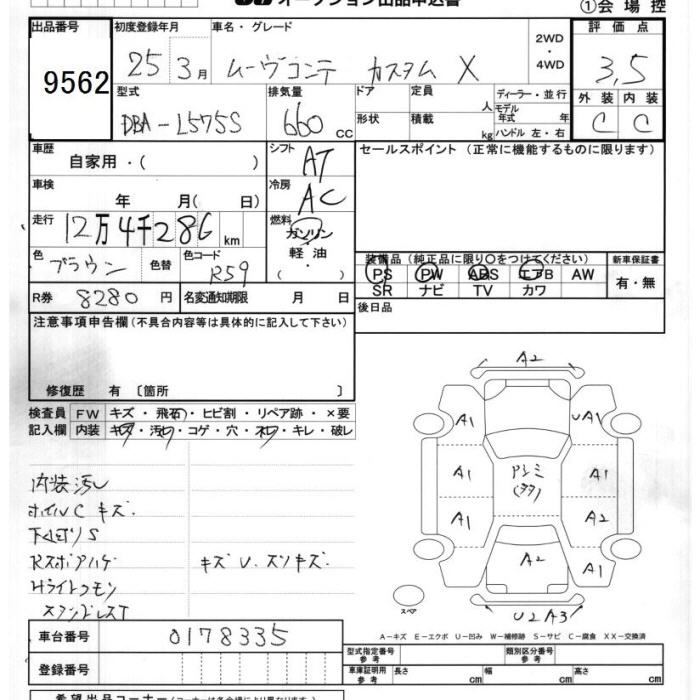 オークション出品申込書
①会場控
出品番号
9562
初度登録年月
25 3月
車名・グレード
ムーヴコンテ カスタム X
2WD
・
4WD
評価点
3.5
外装 内装
C C
型式
DBA-L575S
排気量
660 cc
ドア
形状
定員 人
積載 kg
ディーラー・並行
モデル
年式 年
ハンドル 左・右
車歴
自家用・( )
シフト
AT
セールスポイント (正常に機能するものに限ります)
車検
年 月( 日)
冷房
AC
走行
12万4千286 km
燃料
ガソリン
軽油
( )
色
ブラウン
色替
色コード
R59
装備品 (純正品に限り○をつけてください)
PS PW ABS エアB AW
SR ナビ TV カワ
新車保証書
有・無
R券 8280 円
名変通知期限 月 日
後日品
注意事項申告欄(不具合内容等は具体的に記入して下さい)
修復歴 有 〔箇所 〕
検査員
記入欄
FW キズ・飛石・ヒビ割・リペア跡・×要
内装 キズ・汚れ・コゲ・穴・ネジ・キレ・破レ
内装汚レ
ホイルC キズ
下廻りS
Rスポアハゲ キズU.スリキズ
Hライトクモン
スタンドレスT
A2
A1 UA1
A1 A1
A1 A2
A1
A2
U2 A3
スペア
A-キズ E-エクボ U-凹み W-補修跡 S-サビ C-腐食 XX-交換済
車台番号
0178335
登録番号
型式指定番号
参考
類別区分番号
参考
車庫証明用
参考
長さ cm
幅 cm
高さ cm
希望出品コーナー(コーナーは各会場により異なります)